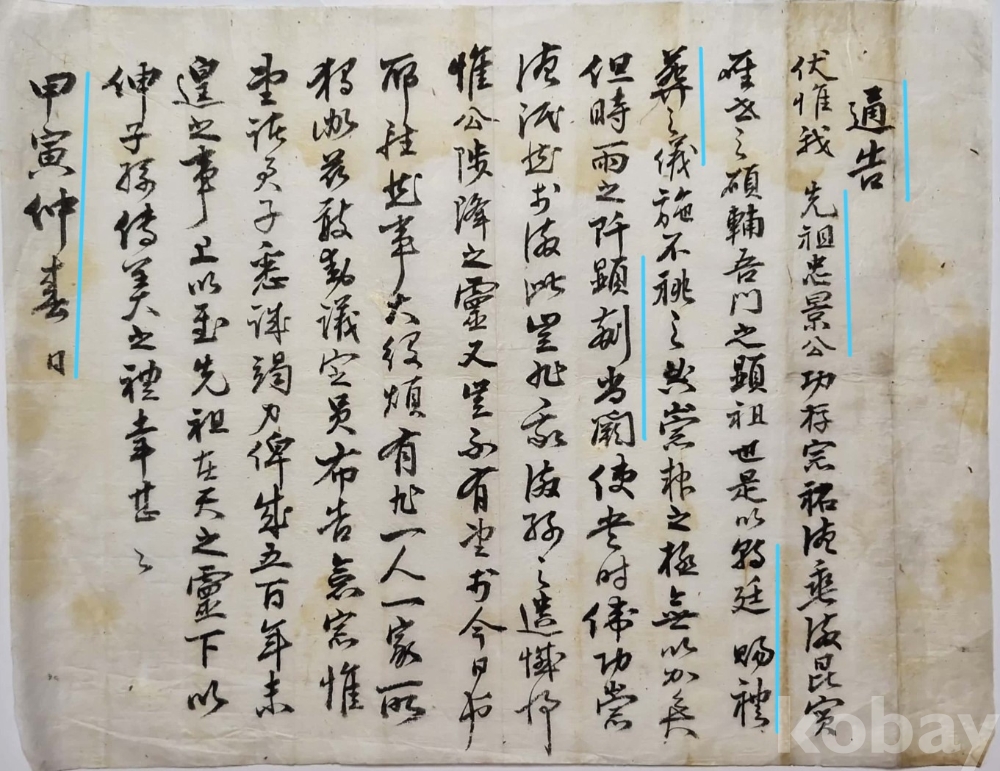 通告
伏惟我 先祖忠景公功存宗祏德垂後昆實
唯世之碩輔吾門之顯祖世是以朝廷 賜禮
葬之儀施不祧之典崇報之極無以加矣
但時雨之阡顯刻尙闕使當時偉功崇
德泯於後此豈非我後孫之遺憾
惟公陟降之靈又豈不有望於今日
耶 此事大役煩有非一人一家所
獨 玆敢發議定員布告 宗惟
望諸君子悉誠竭力俾成五百年未
遑之事上以慰先祖在天之靈下以
伸子孫傳美之禮幸甚〻
甲寅仲春 日
kobay